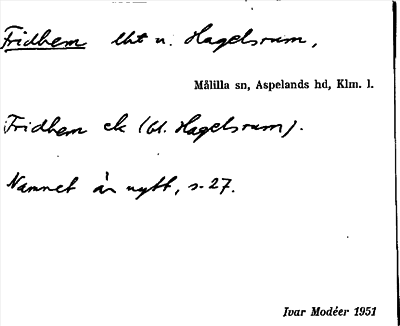 Fridhem lht u. Hagelsrum,
Målilla sn, Aspelands hd, Klm. l.
Fridhem ek (bl. Hagelsrum).
Namnet är nytt, s. 27.
Ivar Modéer 1951